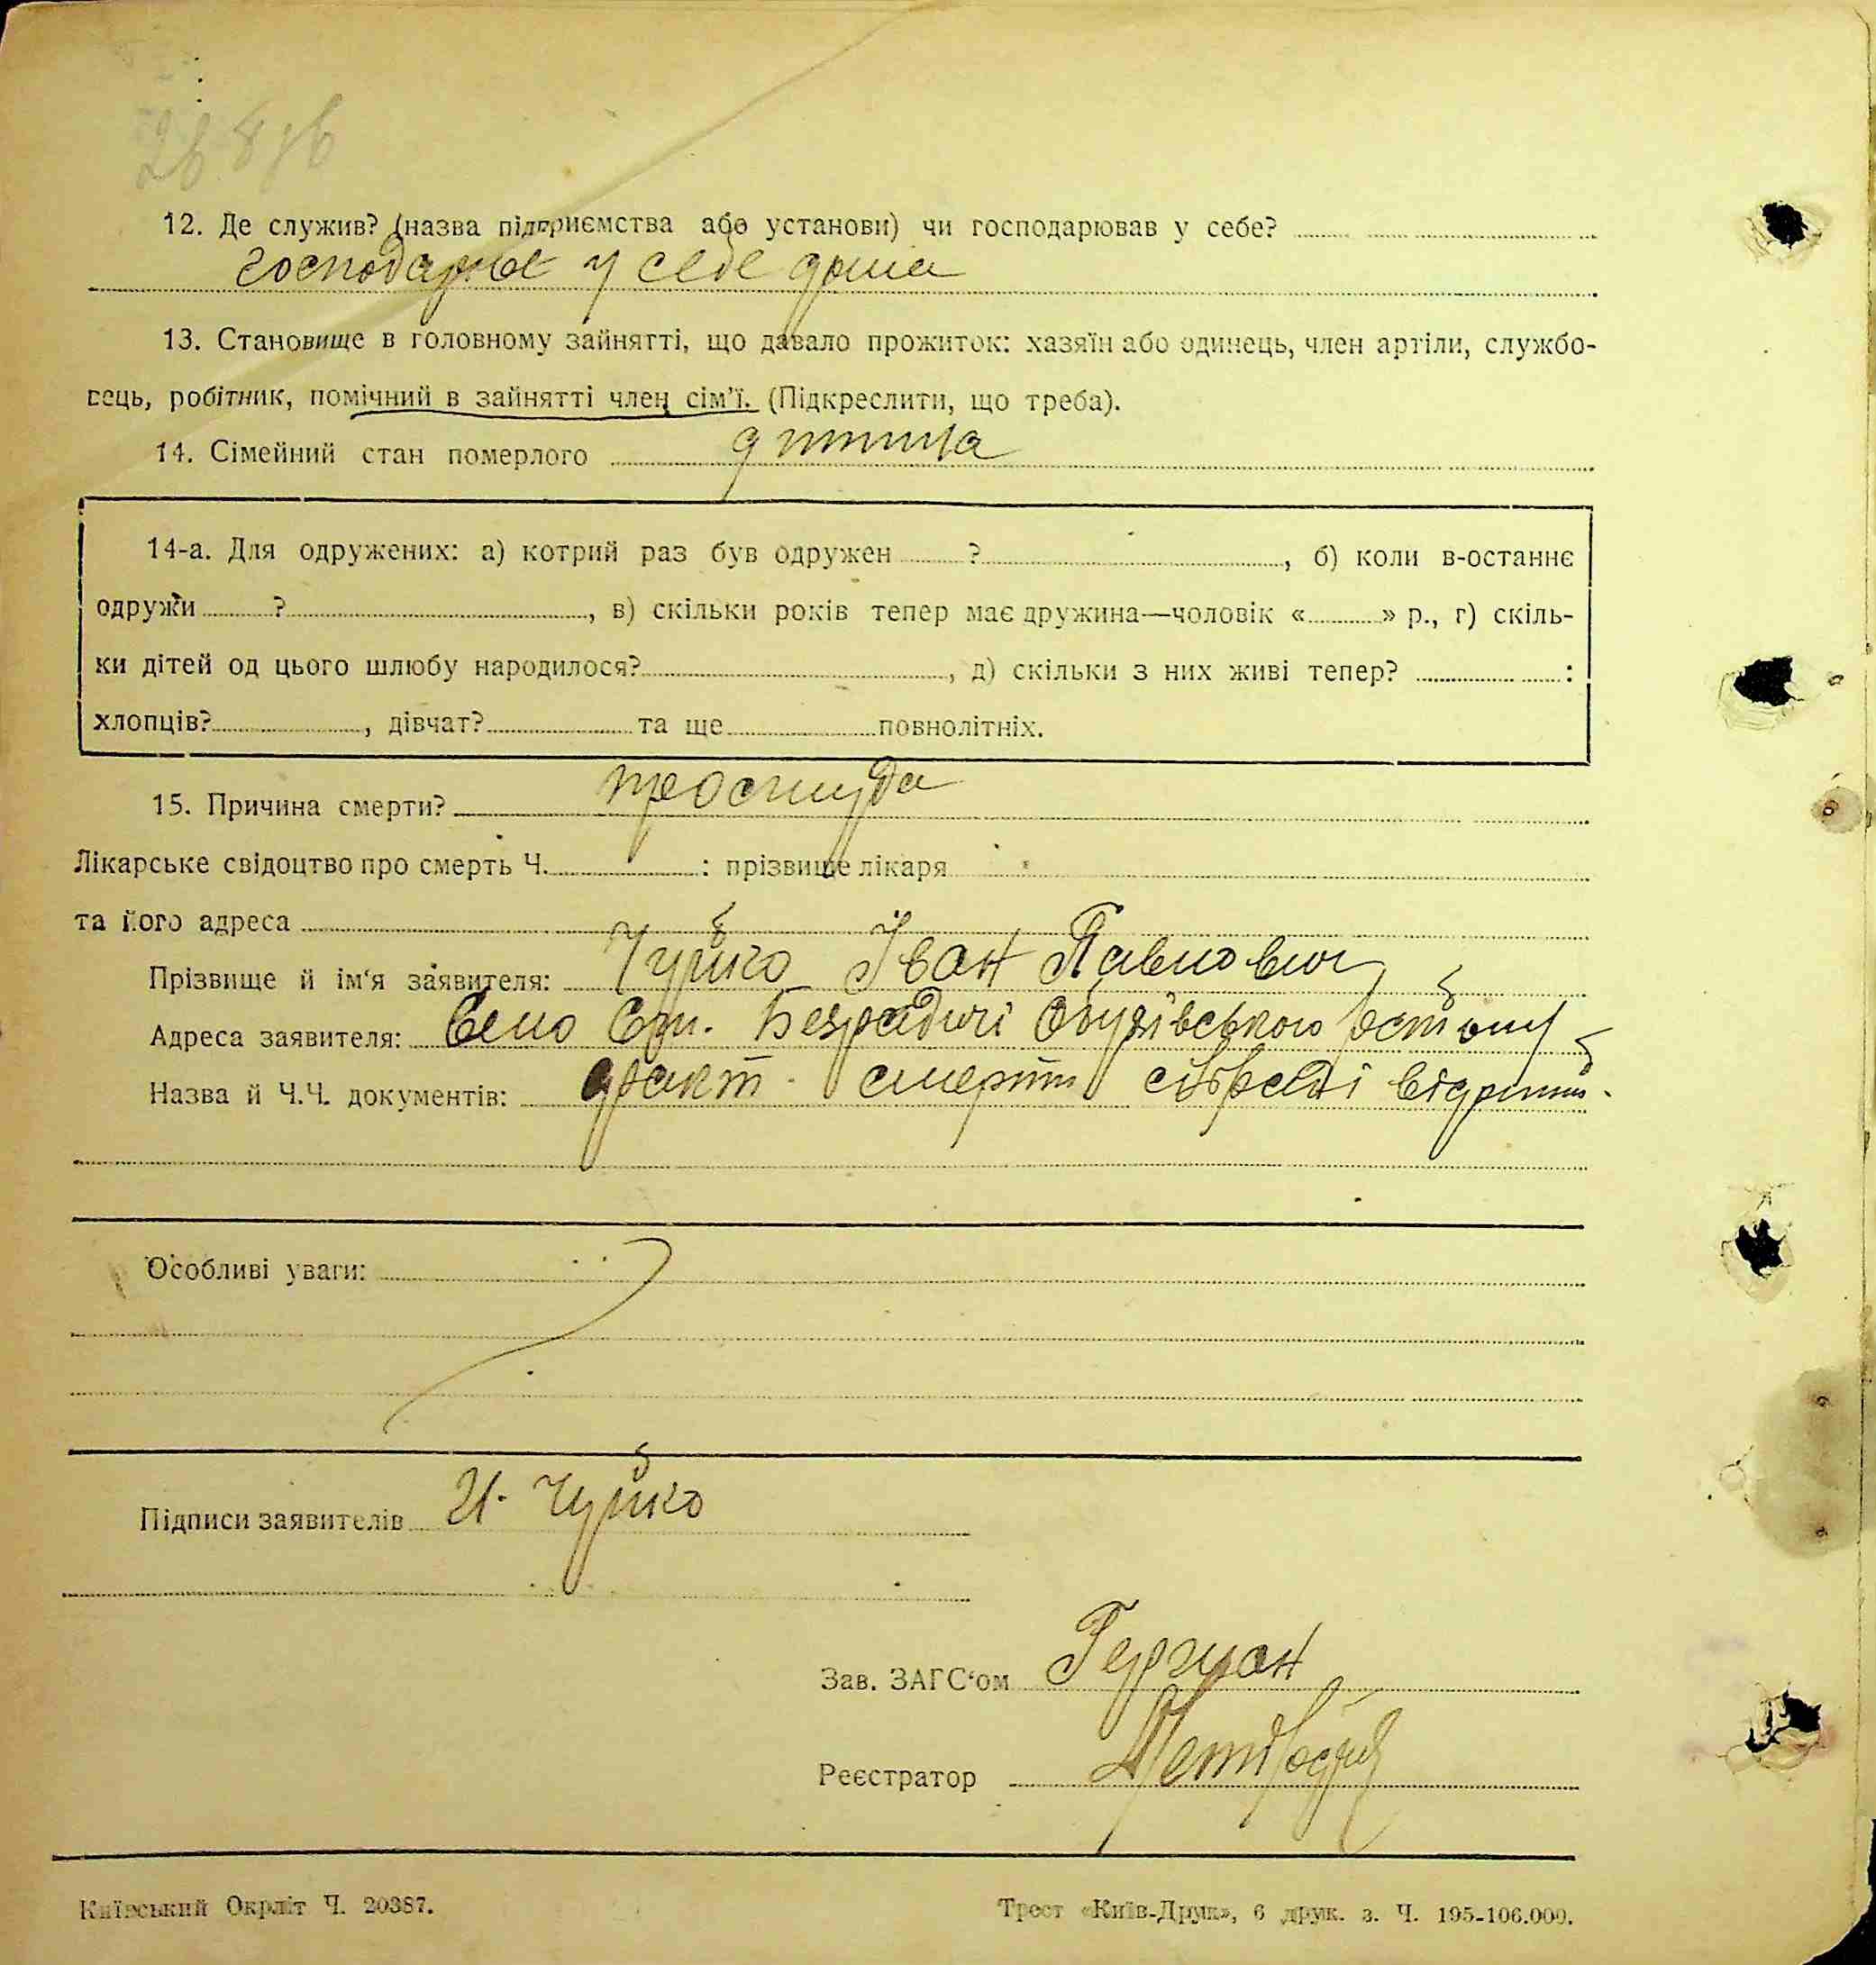 12. Де служив? (назва підприємства або установи) чи господарював у себе?
господарює у себе дома
13. Становище в головному зайнятті, що давало прожиток: хазяїн або одинець, член артіли, службо-
вець, робітник, помічний в зайнятті член сім'ї. (Підкреслити, що треба).
14. Сімейний стан померлого дитина
14-а. Для одружених: а) котрий раз був одружен ?, б) коли в-останнє
одружи ?, в) скільки років тепер має дружина—чоловік « » р., г) скіль-
ки дітей од цього шлюбу народилося?, д) скільки з них живі тепер? :
хлопців?, дівчат? та ще повнолітніх.
15. Причина смерти? простуда
Лікарське свідоцтво про смерть Ч. : прізвище лікаря
та його адреса
Прізвище й ім'я заявителя: Чуйко Іван Павлович
Адреса заявителя: Село Ст. Безрадичі Обухівського
Назва й Ч.Ч. документів: факт смерти
Особливі уваги:
Підписи заявителів И. Чуйко
Зав. ЗАГС'ом
Реєстратор
Київський Окрліт Ч. 20387.
Трест «Київ-Друк», 6 друк. з. Ч. 195-106.000.